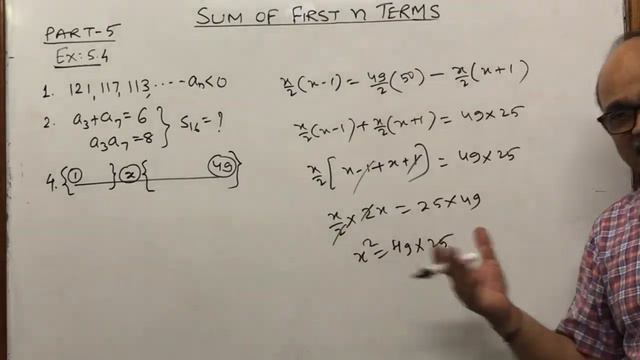 SUM OF FIRST n TERMS
PART-5
Ex: 5.4
1. 121, 117, 113, ---- aₙ<0
2. a₃+a₇ = 6
a₃a₇ = 8
S₁₆ = ?
4. { ① } ⓧ { ㊾ }
x/2(x-1) = 49/2(50) - x/2(x+1)
x/2(x-1) + x/2(x+1) = 49×25
x/2[x-1+x+1] = 49×25
x/2 × 2x = 25×49
x² = 49×25